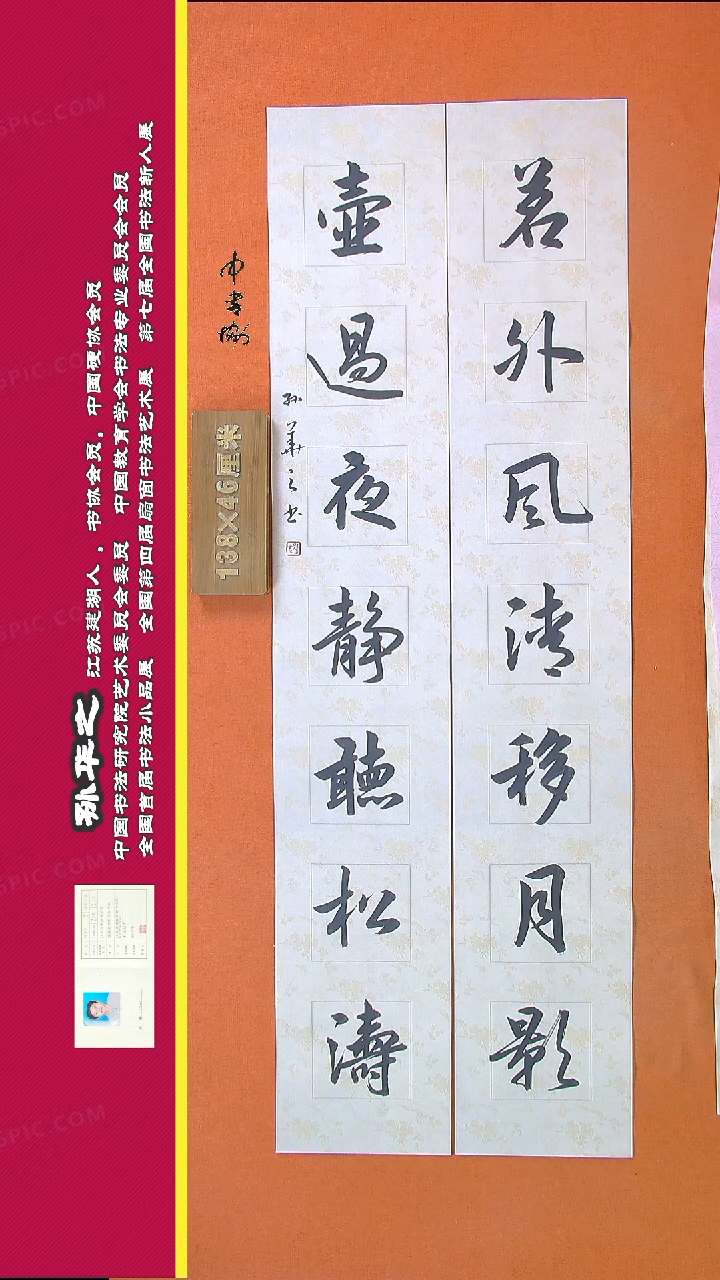 茗外风清移月影
壶過夜静聽松濤
孙華之书
138×46厘米
孙华之 江苏建湖人，书协会员，中国硬协会员
中国书法研究院艺术委员会委员 中国教育学会书法专业委员会会员
全国首届书法小品展 全国第四届扇面书法艺术展 第七届全国书法新人展